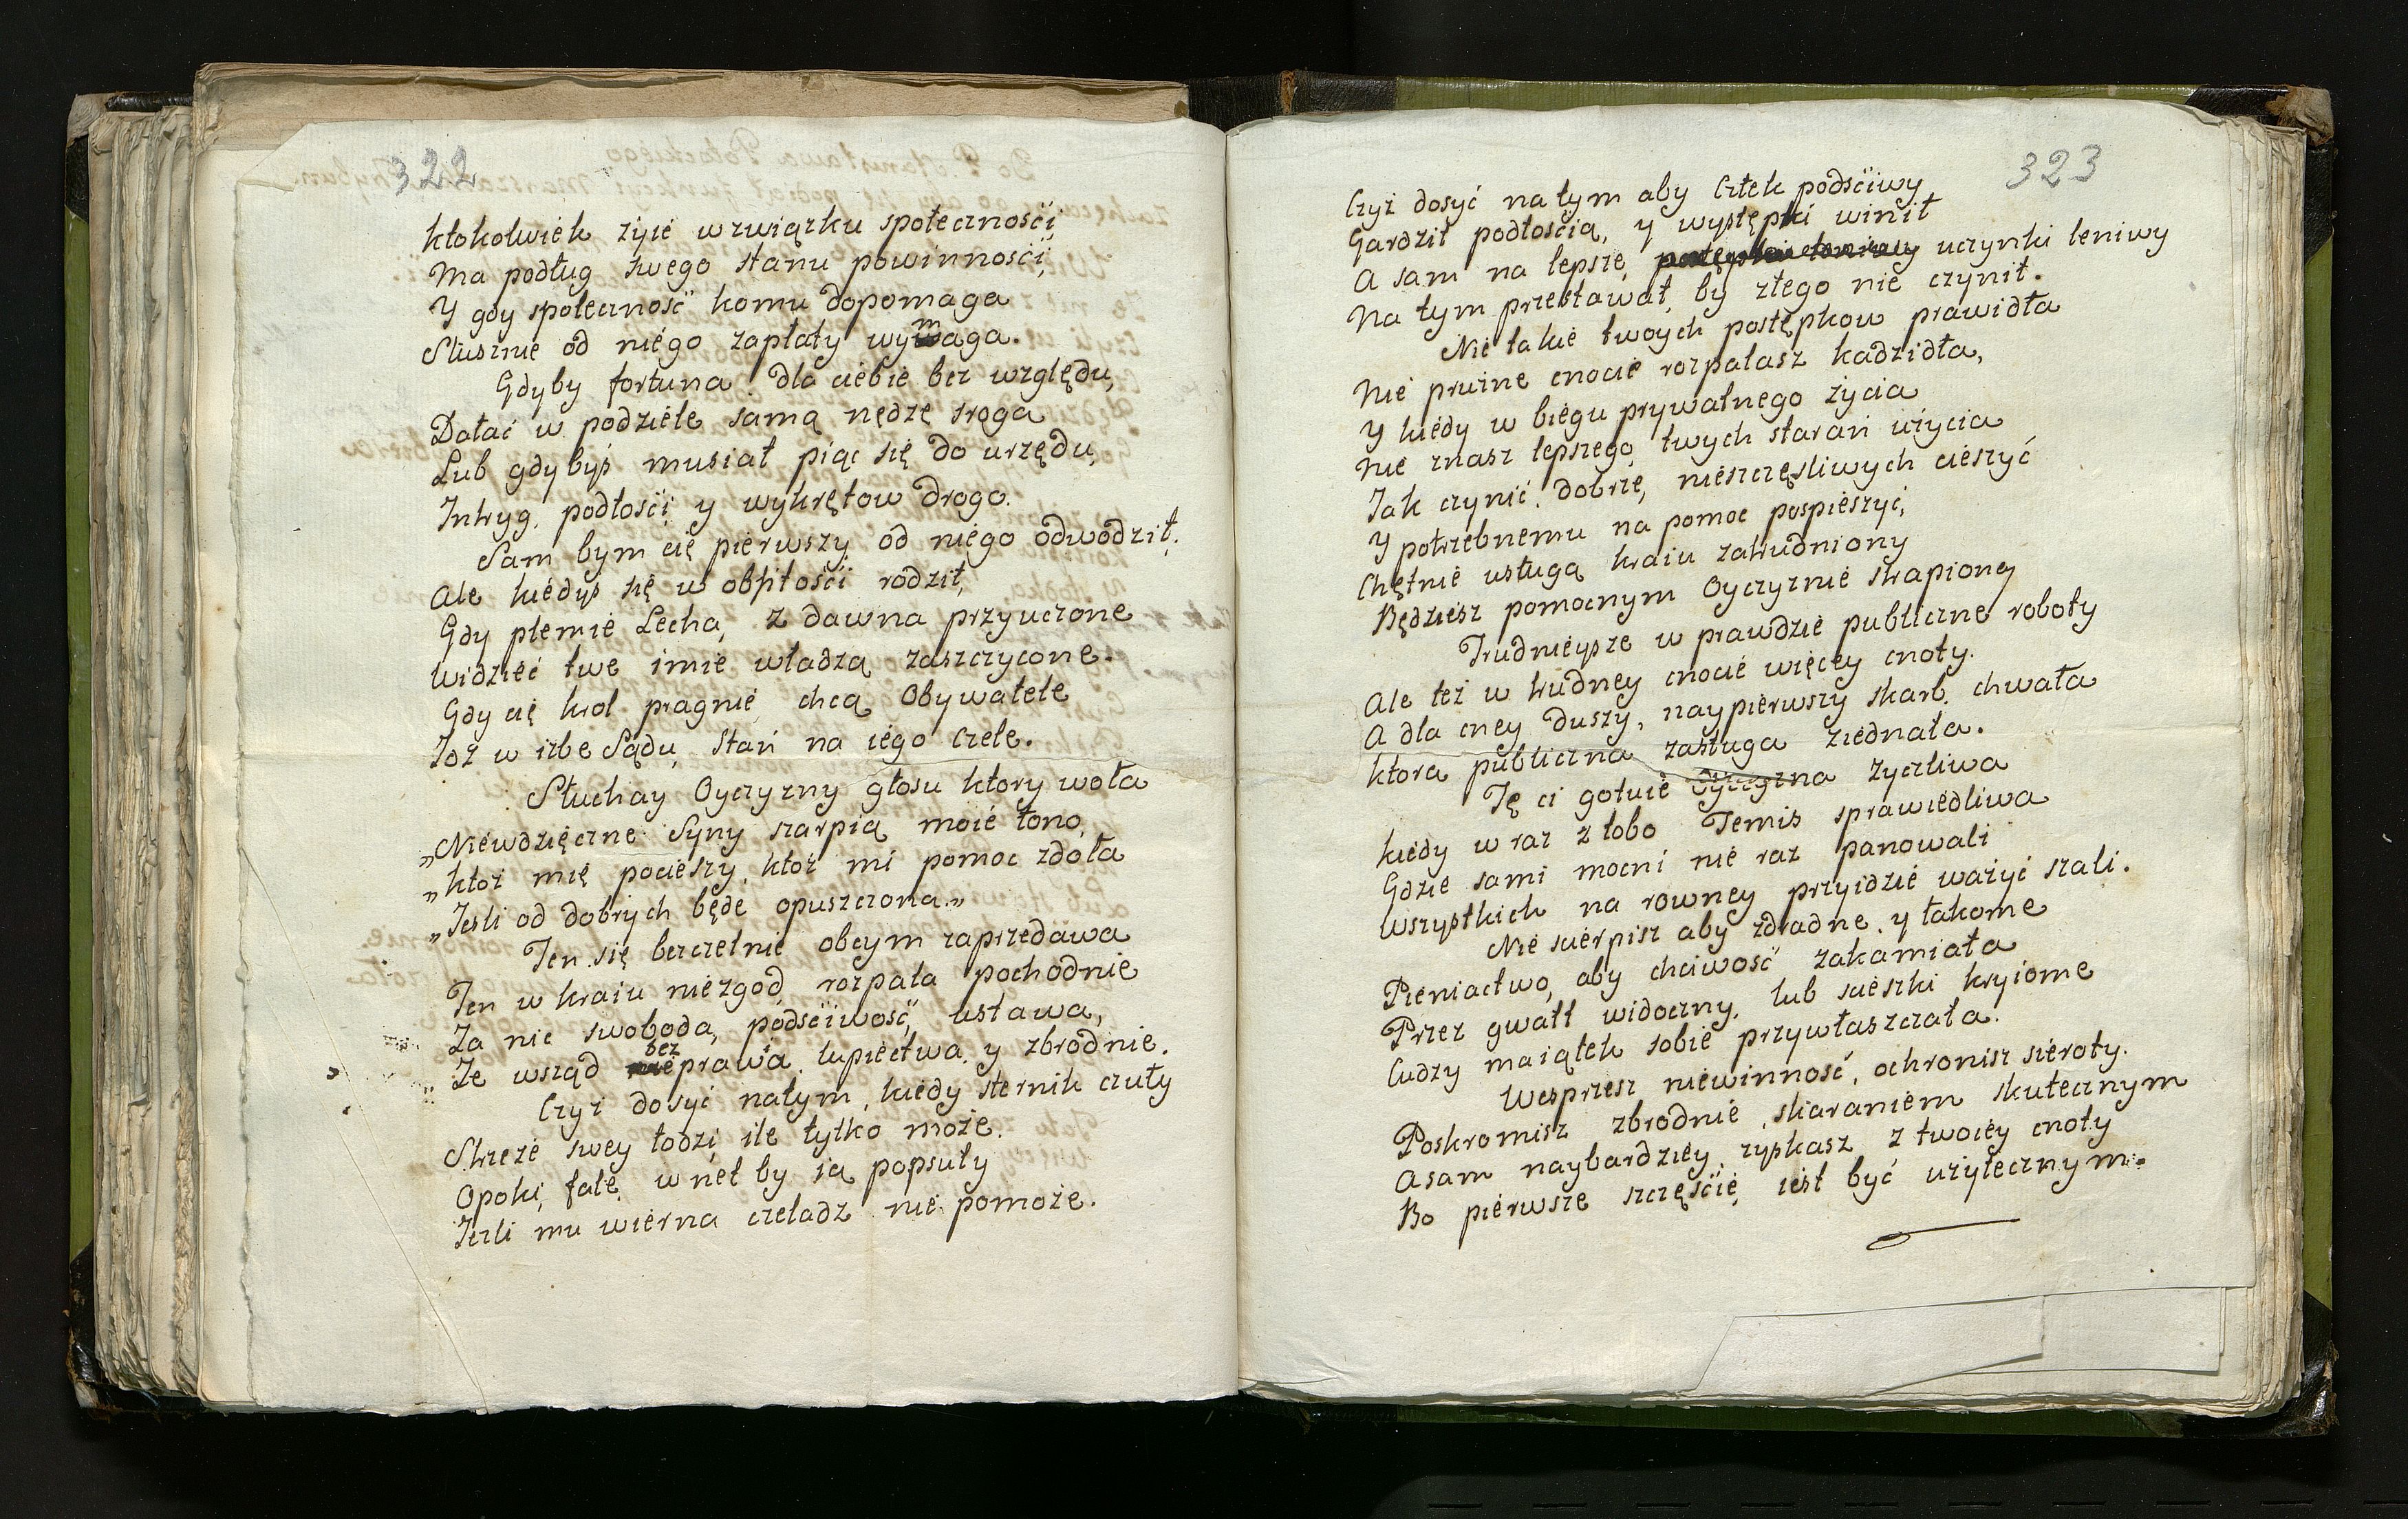 322
ktokolwiek żyie w związku społecznośći,
Ma podług swego stanu powinnośći,
Y gdy społeczność komu dopomaga
Słusznie od niégo zapłaty wymaga.
Gdyby fortuna dla ciébie bez względu,
Dałać w podziele samą nędzę srogą
Lub gdybyś musiał piąc się do urzędu,
Intryg, podłośći y wykrętow drogą.
Sam bym cię piérwszy od niégo odwodził,
Ale kiédyś się w obfitośći rodził,
Gdy plemie Lecha, z dawna przyuczone
Widzieć twe imie władzą zaszczycone.
Gdy cię krol pragnie, chcą Obywatele
Toż w izbe Sądu, stań na iégo czele.
Słuchay Oyczyzny głosu ktory woła
„Niéwdzięczne Syny szarpią moié łono,
„ktoż mię pocieszy, ktoż mi pomoc zdoła
„Jesli od dobrych będę opuszczoną.„
Ten się bezczelnie obcym zaprzedawa
Ten w kraiu niézgod, rozpala pochodnie
Za nic swoboda, podśćiwość, ustawa,
Ze wsząd bezprawia, łupiéctwa, y zbrodnie.
Czyż dosyć natym, kiédy sternik czuły
Strzeże swey łodzi, ile tylko może.
Opoki, fale, wnet by ią popsuły
Jezli mu wiérna czeladz nie pomoże.
323
Czyż dosyć na tym aby Człek podśćiwy
Gardził podłośćią, y występki winił
A sam na lepsze, uczynki leniwy
Na tym przestawał, by złego nie czynił.
Nie takie twoych postępkow prawidła
Nie prużne cnocie rozpalasz kadzidła,
Y kiédy w biégu prywatnego życia
Nie znasz lepszego, twych starań użycia
Jak czynić dobrze, niészczęsliwych ciészyć
Y potrzebnemu na pomoc pospiészyć,
Chętnie usługą kraiu zatrudniony
Będziész pomocnym Oyczyznie strapioney
Trudniéysze w prawdzie publiczne roboty
Ale też w trudney cnocie więcey cnoty.
A dla cney duszy, naypiérwszy skarb, chwała
ktora publiczna zasługa ziédnała.
Tę ci gotuie Oyczyzna życzliwa
kiédy w raz z tobo Temis sprawiédliwa
Gdzie sami mocni nie raz panowali
Wszystkich na rowney przyidzie ważyć szali.
Nie sciérpisz aby zdradne, y łakome
Pieniactwo, aby chciwość zakamiała
Przez gwałt widoczny, lub sciészki kryiome
Cudzy maiątek sobie przywłaszczała.
Wesprzesz niéwinność, ochronisz siéroty.
Poskromisz zbrodnie, skaraniém skutecznym
A sam naybardziéy, zyskasz z twoiéy cnoty
Bo piérwsze szczęśćié, iést być użytecznym.